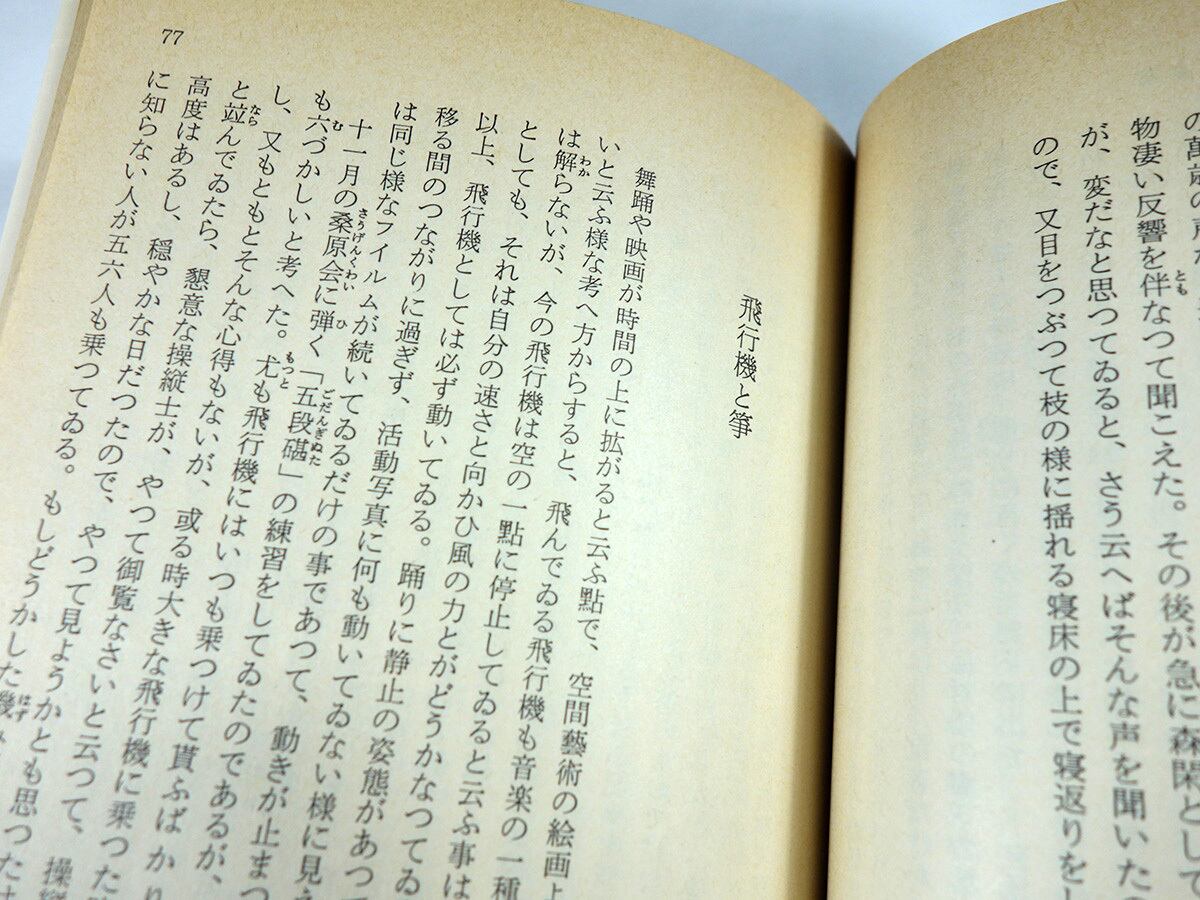 の萬歳の声
物凄い反響を伴なつて聞こえた。その後が急に森閑として
が、変だなと思つてゐると、さう云へばそんな声を聞いたの
ので、又目をつぶつて枝の様に揺れる寝床の上で寝返りをし
飛行機と箏
舞踊や映画が時間の上に拡がると云ふ點で、空間藝術の絵画上
いと云ふ様な考へ方からすると、飛んでゐる飛行機も音楽の一種
は解らないが、今の飛行機は空の一點に停止してゐると云ふ事は
としても、それは自分の速さと向かひ風の力とがどうかなつてゐ
以上、飛行機としては必ず動いてゐる。踊りに静止の姿態があつ
移る間のつながりに過ぎず、活動写真に何も動いてゐない様に見え
は同じ様なフイルムが続いてゐるだけの事であつて、動きが止まつ
十一月の桑原会に弾く「五段碪」の練習をしてゐたのであるが、
も六づかしいと考へた。尤も飛行機にはいつも乗つけて貰ふばかり
し、又もともとそんな心得もないが、或る時大きな飛行機に乗つた
と竝んでゐたら、懇意な操縦士が、やつて御覧なさいと云つて、操縦
高度はあるし、穏やかな日だつたので、やつて見ようかとも思つたけ
に知らない人が五六人も乗つてゐる。もしどうかした機み
77